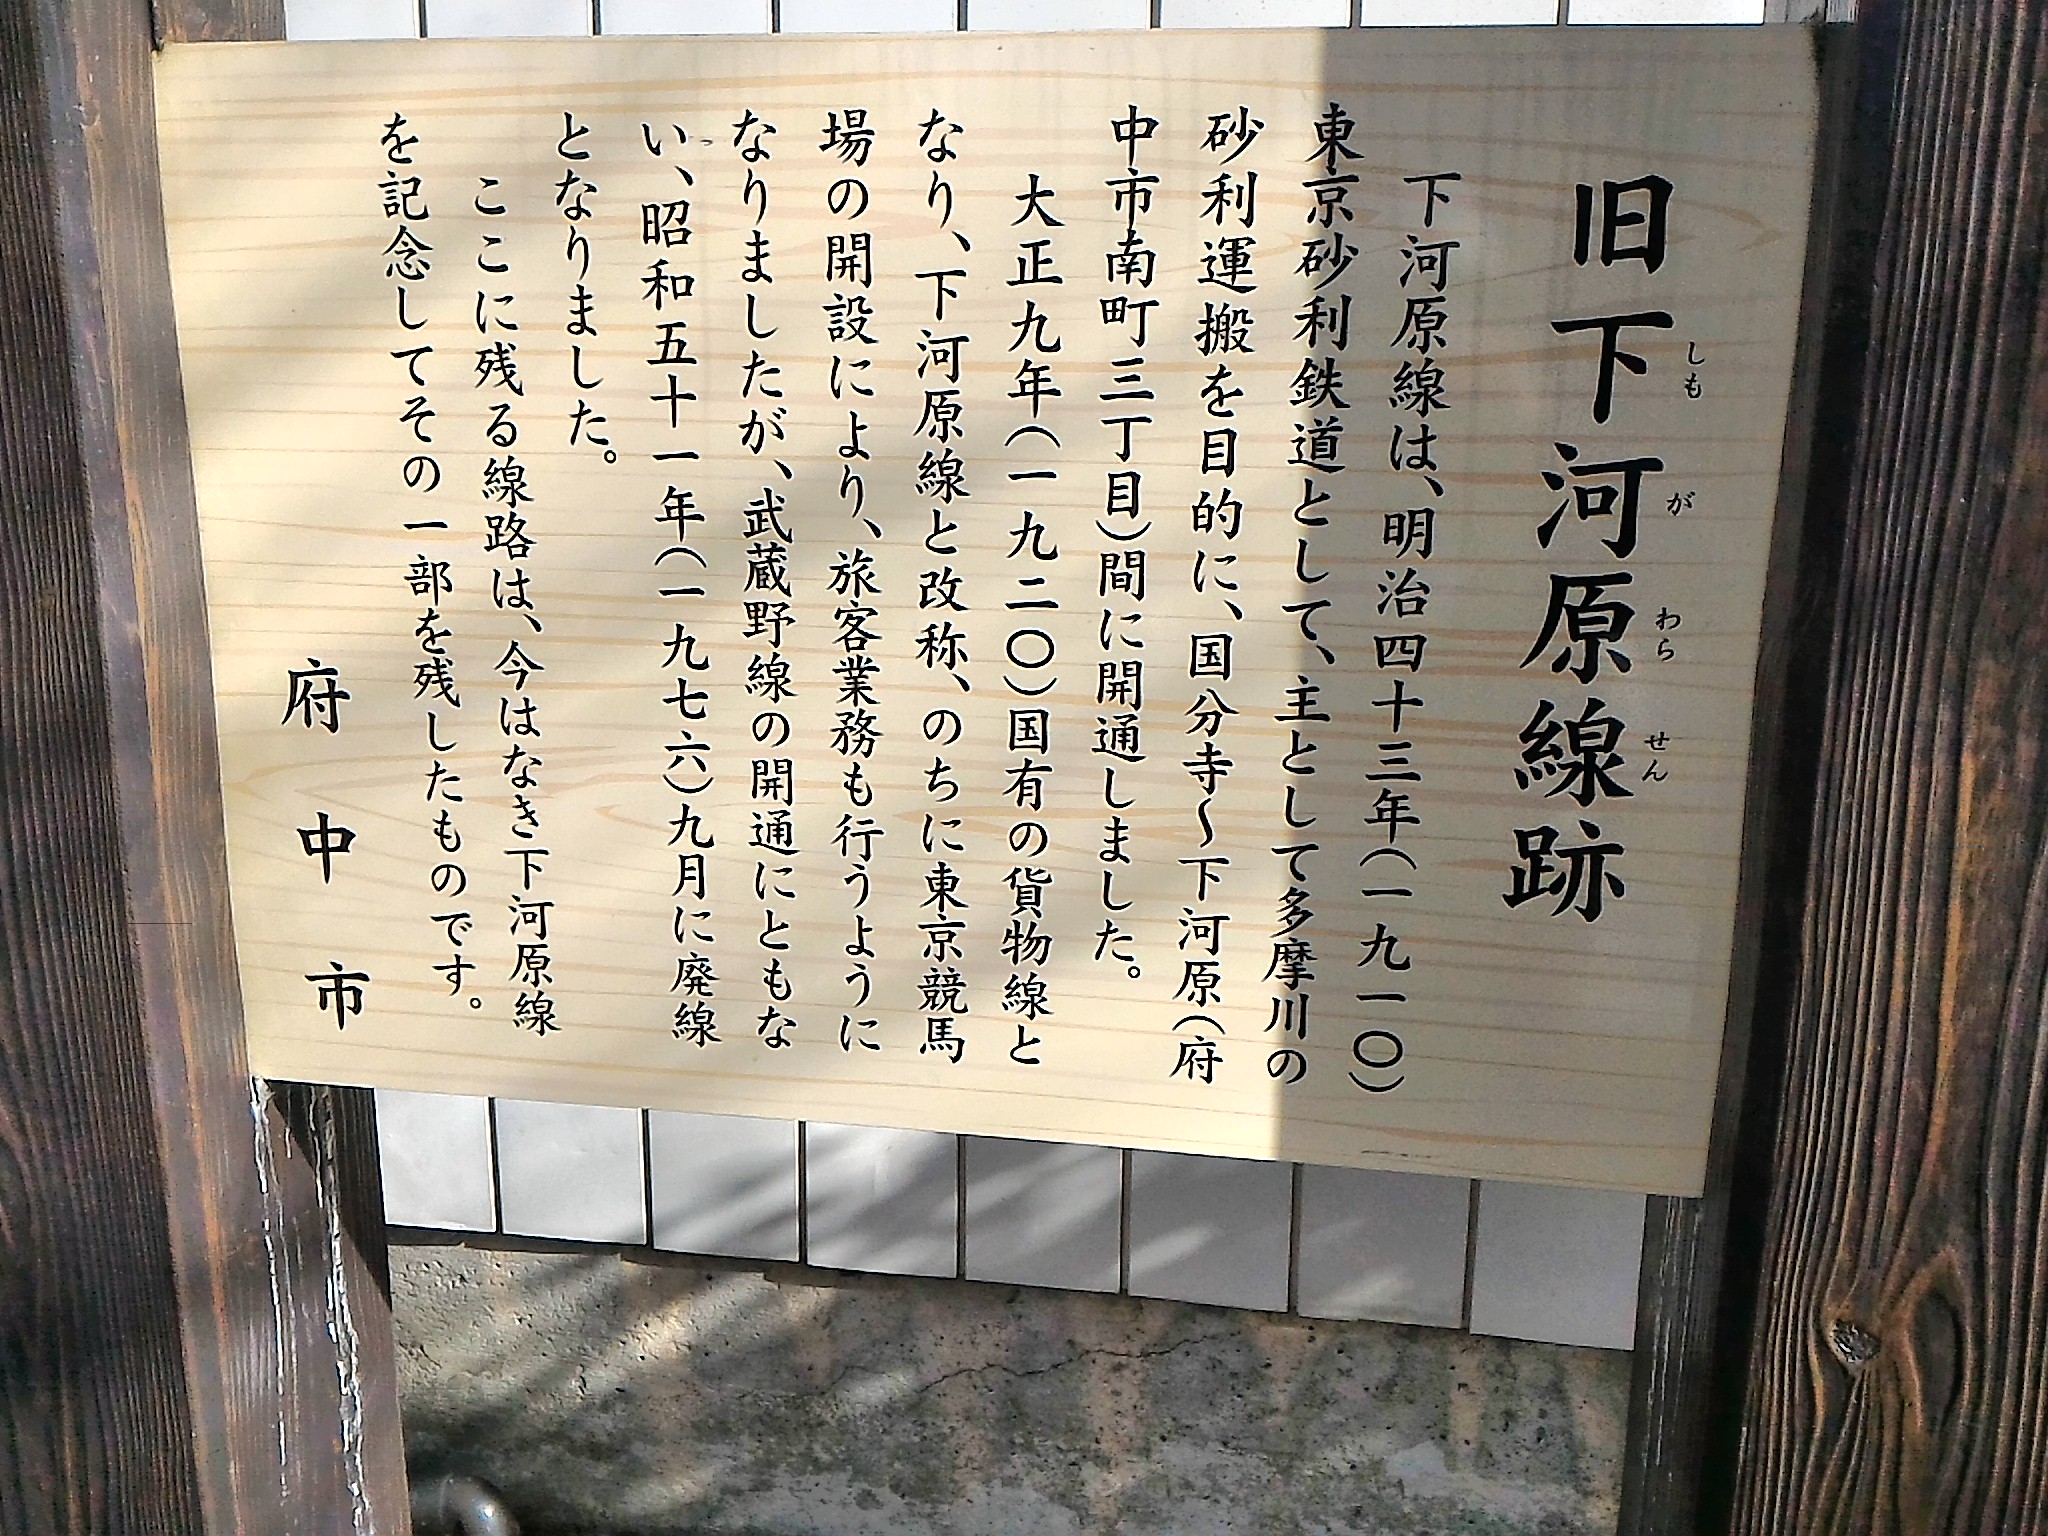 旧下河原線跡
しも が わら せん
下河原線は、明治四十三年(一九一〇)
東京砂利鉄道として、主として多摩川の
砂利運搬を目的に、国分寺〜下河原(府
中市南町三丁目)間に開通しました。
大正九年(一九二〇)国有の貨物線と
なり、下河原線と改称、のちに東京競馬
場の開設により、旅客業務も行うように
なりましたが、武蔵野線の開通にともな
い、昭和五十一年(一九七六)九月に廃線
となりました。
ここに残る線路は、今はなき下河原線
を記念してその一部を残したものです。
府中市